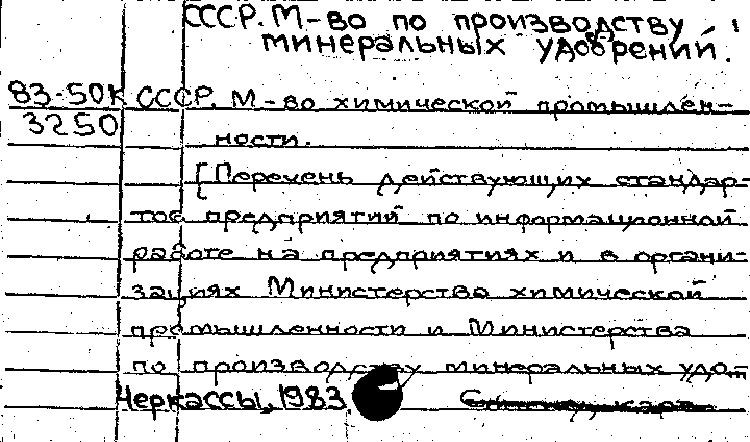 СССР. М-во по производству
минеральных удобрений.
83-50К СССР. М-во химической промышлен-
3250 ности.
[Перечень действующих стандар-
тов предприятий по информационной
работе на предприятиях и в органи-
зациях Министерства химической
промышленности и Министерства
по производству минеральных удо
Черкассы, 1983.